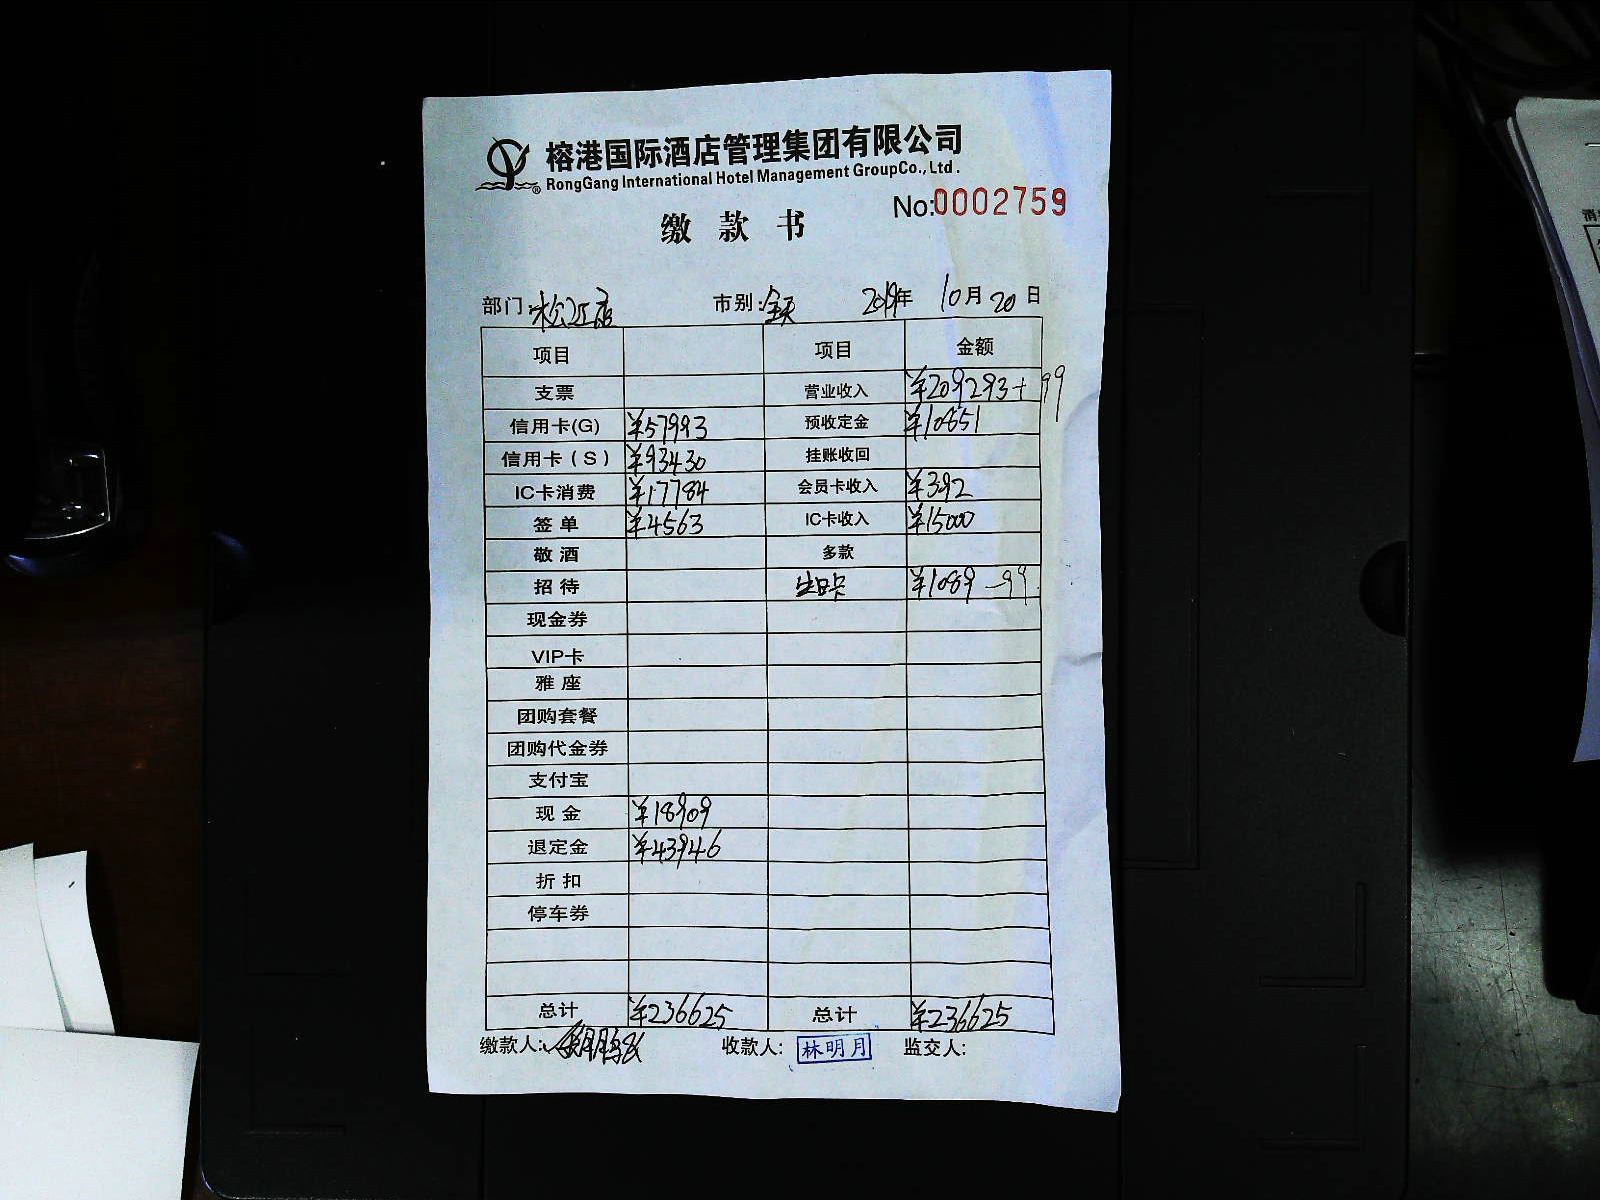 榕港国际酒店管理集团有限公司
®RongGang International Hotel Management GroupCo., Ltd.
No:0002759
缴 款 书
部门:松江店 市别:全天 2019年 10月 20日
项目 项目 金额
支票 营业收入 ¥209293+99
信用卡(G) ¥57993 预收定金 ¥10851
信用卡(S) ¥93430 挂账收回
IC卡消费 ¥17784 会员卡收入 ¥392
签 单 ¥4563 IC卡收入 ¥15000
敬 酒 多款
招 待 生日卡 ¥1089 -99
现金券
VIP卡
雅 座
团购套餐
团购代金券
支付宝
现 金 ¥18909
退定金 ¥43946
折 扣
停车券
总计 ¥236625 总计 ¥236625
缴款人: 收款人: 林明月 监交人: